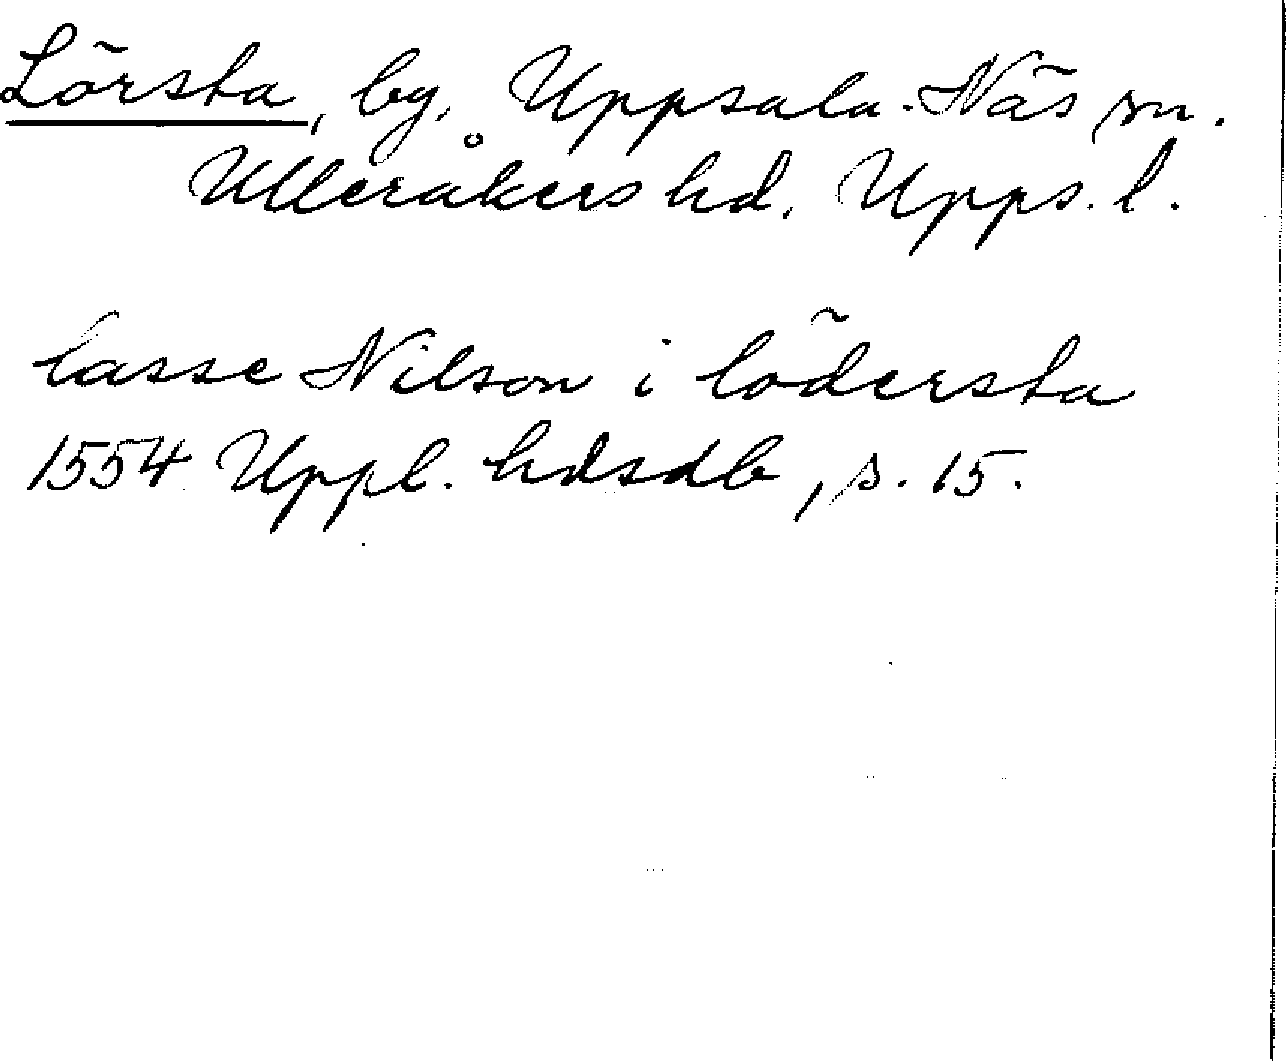 Lörsta, by, Uppsala-Näs sn.
Ulleråkers hd. Upps. l.
lasse Nilson i lödersta
1554 Uppl. hdsdb, s. 15.